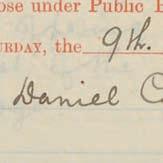 ose under Public
TURDAY, the 9th.
Daniel C